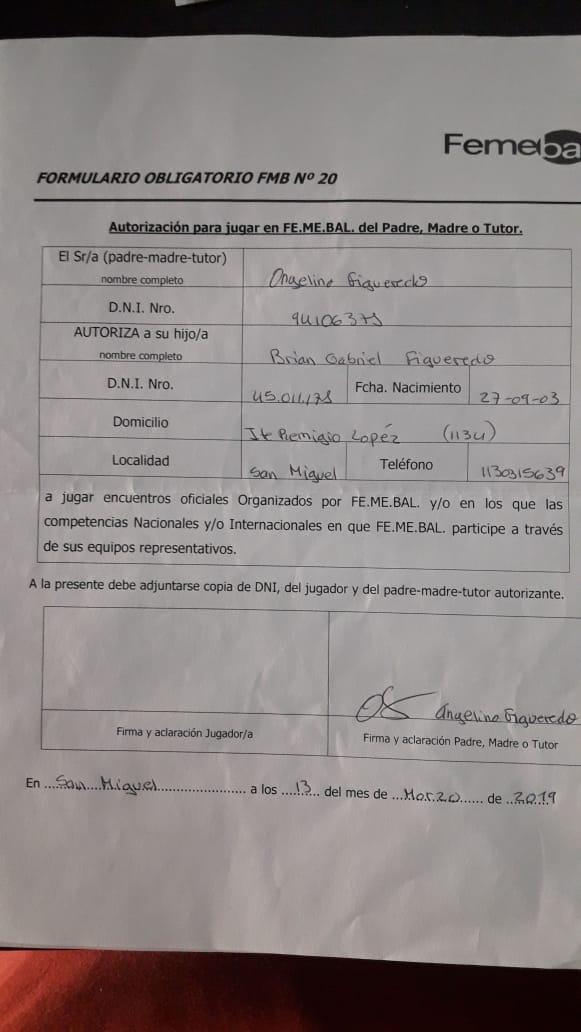 Femeba
FORMULARIO OBLIGATORIO FMB Nº 20
Autorización para jugar en FE.ME.BAL. del Padre, Madre o Tutor.
El Sr/a (padre-madre-tutor)
nombre completo
Angelino Figueredo
D.N.I. Nro.
94106375
AUTORIZA a su hijo/a
nombre completo
Brian Gabriel Figueredo
D.N.I. Nro.
45.011.175
Fcha. Nacimiento
27-09-03
Domicilio
Remigio Lopéz (1134)
Localidad
San Miguel
Teléfono
1130315639
a jugar encuentros oficiales Organizados por FE.ME.BAL. y/o en los que las
competencias Nacionales y/o Internacionales en que FE.ME.BAL. participe a través
de sus equipos representativos.
A la presente debe adjuntarse copia de DNI, del jugador y del padre-madre-tutor autorizante.
Angelino Figueredo
Firma y aclaración Jugador/a
Firma y aclaración Padre, Madre o Tutor
En ....San Miguel...................... a los ....13... del mes de ...Marzo...... de ..2019